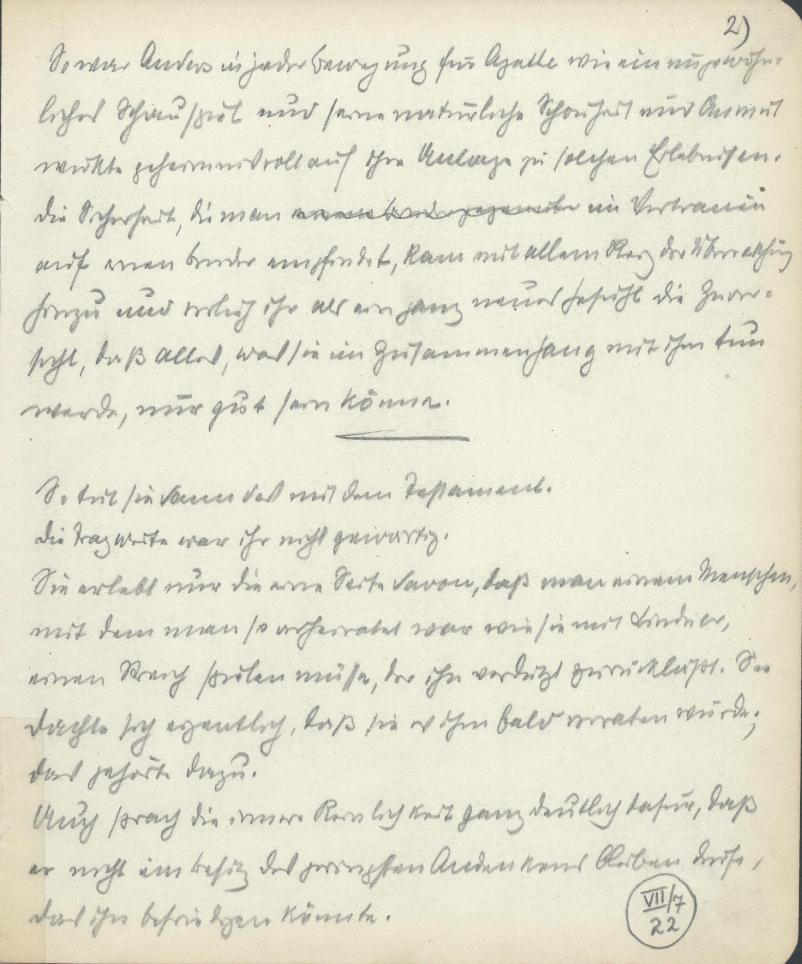 2)
So war Anders in jeder Bewegung für Agathe wie ein ungewöhn-
liches Schauspiel und seine natürliche Schönheit und Anmut
wirkte geheimnisvoll auf ihre Anlage zu solchen Erlebnissen.
Die Sicherheit, die man einem Bruder gegenüber im Vertrauen
auf einen Bruder empfindet, kam mit allem Reiz der Überraschung
hinzu und verlieh ihr als ein ganz neues Gefühl die Zuver-
sicht, daß alles, was sie im Zusammenhang mit ihm tun
werde, nur gut sein könne.
So tut sie dann das mit dem Testament.
Die Tragweite war ihr nicht gewärtig.
Sie erlebt nur die eine Seite davon, daß man einem Menschen,
mit dem man so verheiratet war wie sie mit Lindner,
einen Streich spielen müsse, der ihn verdutzt zurückläßt. Sie
dachte sich eigentlich, daß sie es ihm bald verraten würde;
das gehörte dazu.
Auch sprach die innere Reinlichkeit ganz deutlich dafür, daß
er nicht im Besitz des geringsten Andenkens bleiben dürfe,
das ihn befriedigen könnte.
VII/7
22